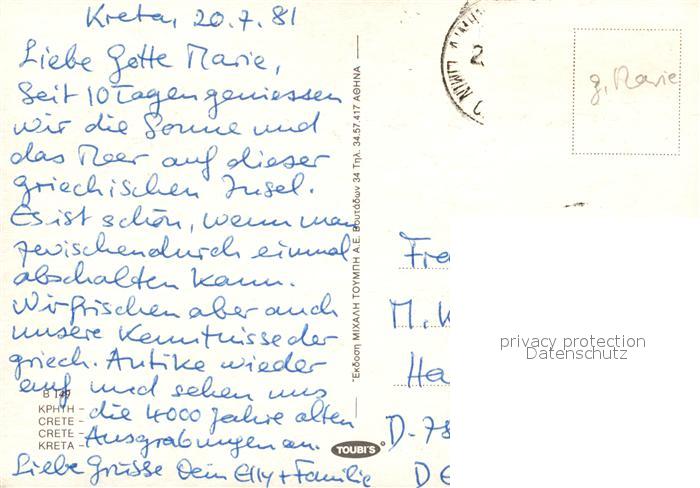 Kreta, 20.7.81
Liebe Gotte Marie,
Seit 10 Tagen geniessen
wir die Sonne und
das Meer auf dieser
griechischen Insel.
Es ist schön, wenn man
zwischendurch einmal
abschalten kann.
Wir frischen aber auch
unsere Kenntnisse der
griech. Antike wieder
auf und sehen uns
die 4000 Jahre alten
Ausgrabungen an.
Liebe Grüsse Dein Elly + Familie
B 149
ΚΡΗΤΗ -
CRETE -
CRETE -
KRETA -
Έκδοση ΜΙΧΑΛΗ ΤΟΥΜΠΗ Α.Ε. Βουτάδων 34 Τηλ. 34.57.417 ΑΘΗΝΑ
TOUBI'S
2
g. Marie
Fra
M. K
Ha
D-78
DE
privacy protection
Datenschutz